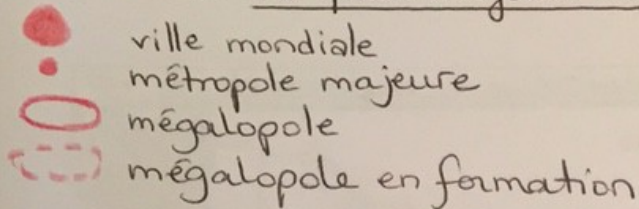 ville mondiale
métropole majeure
mégalopole
mégalopole en formation